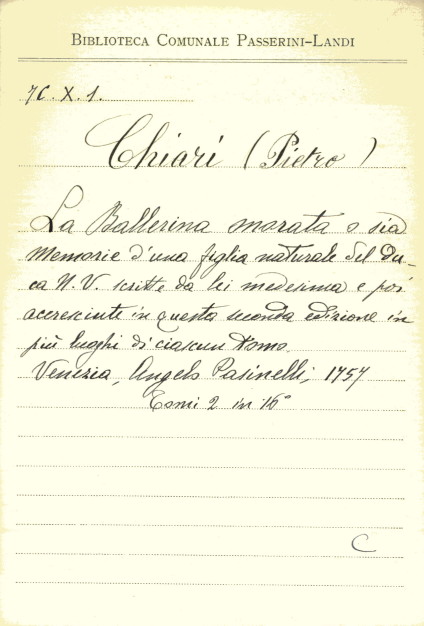 BIBLIOTECA COMUNALE PASSERINI-LANDI
7C. X. 1.
Chiari (Pietro)
La Ballerina morata o sia
Memorie d'una figlia naturale del Du-
ca N. V. scritte da lei medesima e poi
accresciute in questa seconda edizione in
più luoghi di ciascun tomo.
Venezia, Angelo Pasinelli, 1757
Tomi 2 in 16°
C